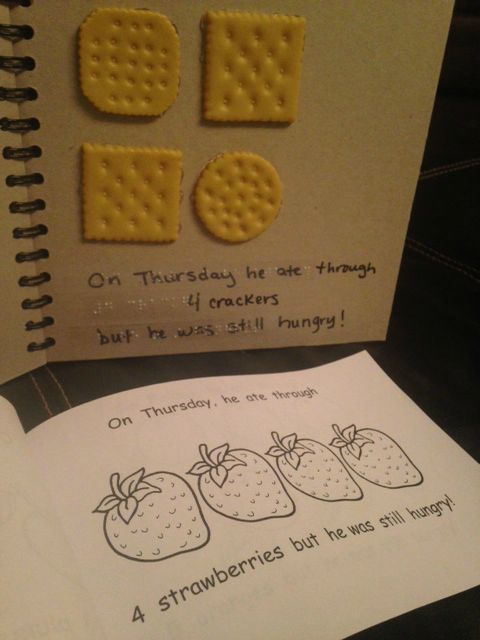 On Thursday he ate through
4 crackers
but he was still hungry!
On Thursday, he ate through
4 strawberries but he was still hungry!